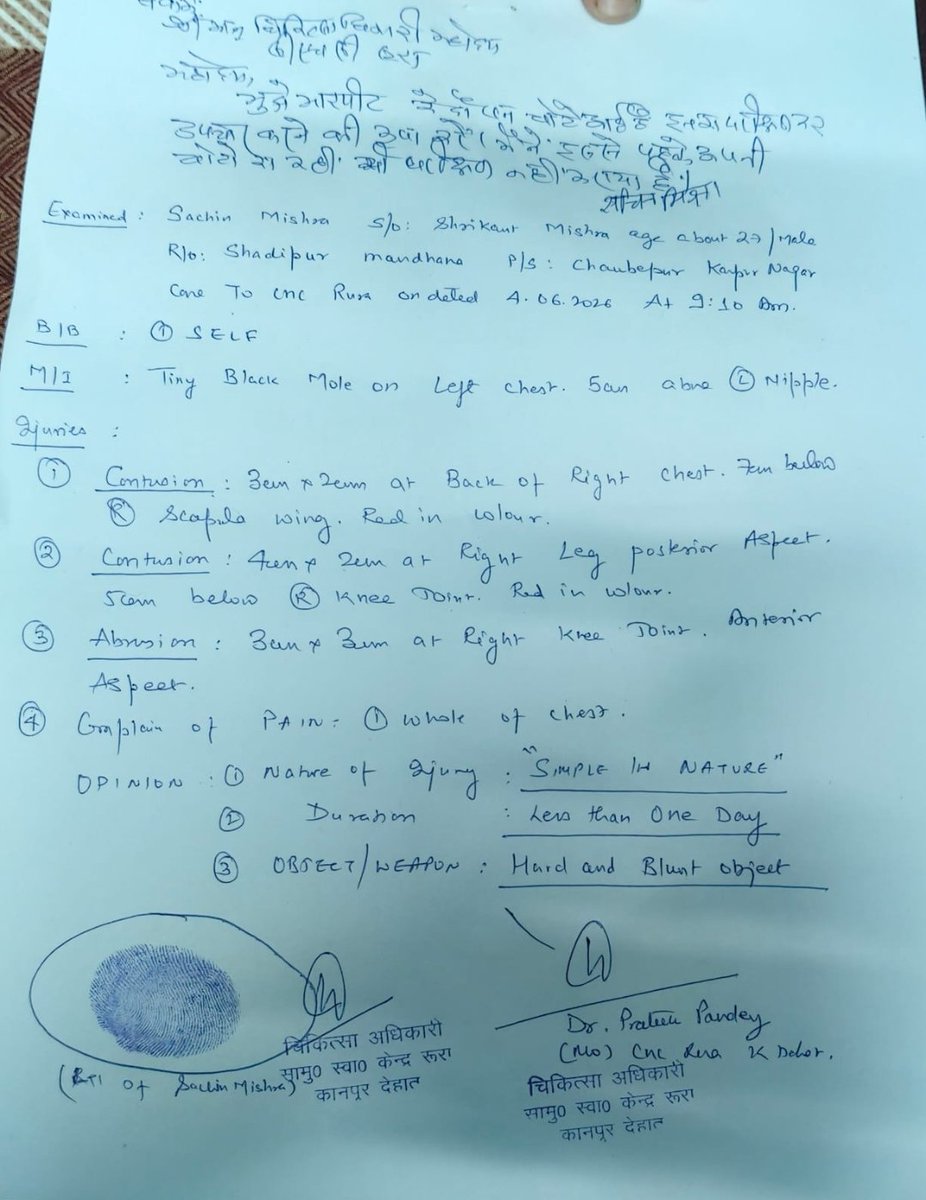 मुझे मारपीट
मैंने इससे पहले अपनी
चोटों का कहीं भी परीक्षण नहीं कराया है।
सचिन मिश्रा
Examined : Sachin Mishra S/o: Shrikant Mishra age about 27/Male
R/o: Shadipur mandhana P/S: Chaubepur Kanpur Nagar
Came To CHC Rura on dated 4.06.2026 At 9:10 Am.
B|B : ① SELF
M/I : Tiny Black Mole on Left chest. 5cm above Ⓛ Nipple.
Injuries :
① Contusion : 3cm x 2cm at Back of Right Chest. 7cm below
Ⓡ Scapula wing. Red in colour.
② Contusion : 4cm x 2cm at Right Leg posterior Aspect.
5cm below Ⓡ Knee Joint. Red in colour.
③ Abrasion : 3cm x 3cm at Right Knee Joint. Anterior
Aspect.
④ Complain of PAIN: ① Whole of chest.
OPINION : ① Nature of Injury : "SIMPLE IN NATURE"
② Duration : Less than One Day
③ OBJECT/WEAPON : Hard and Blunt object
Dr. Prateek Pandey
(MO) CHC Rura K Dehat.
चिकित्सा अधिकारी
सामु0 स्वा0 केन्द्र रूरा
कानपुर देहात
(RTI of Sachin Mishra)
चिकित्सा अधिकारी
सामु0 स्वा0 केन्द्र रूरा
कानपुर देहात